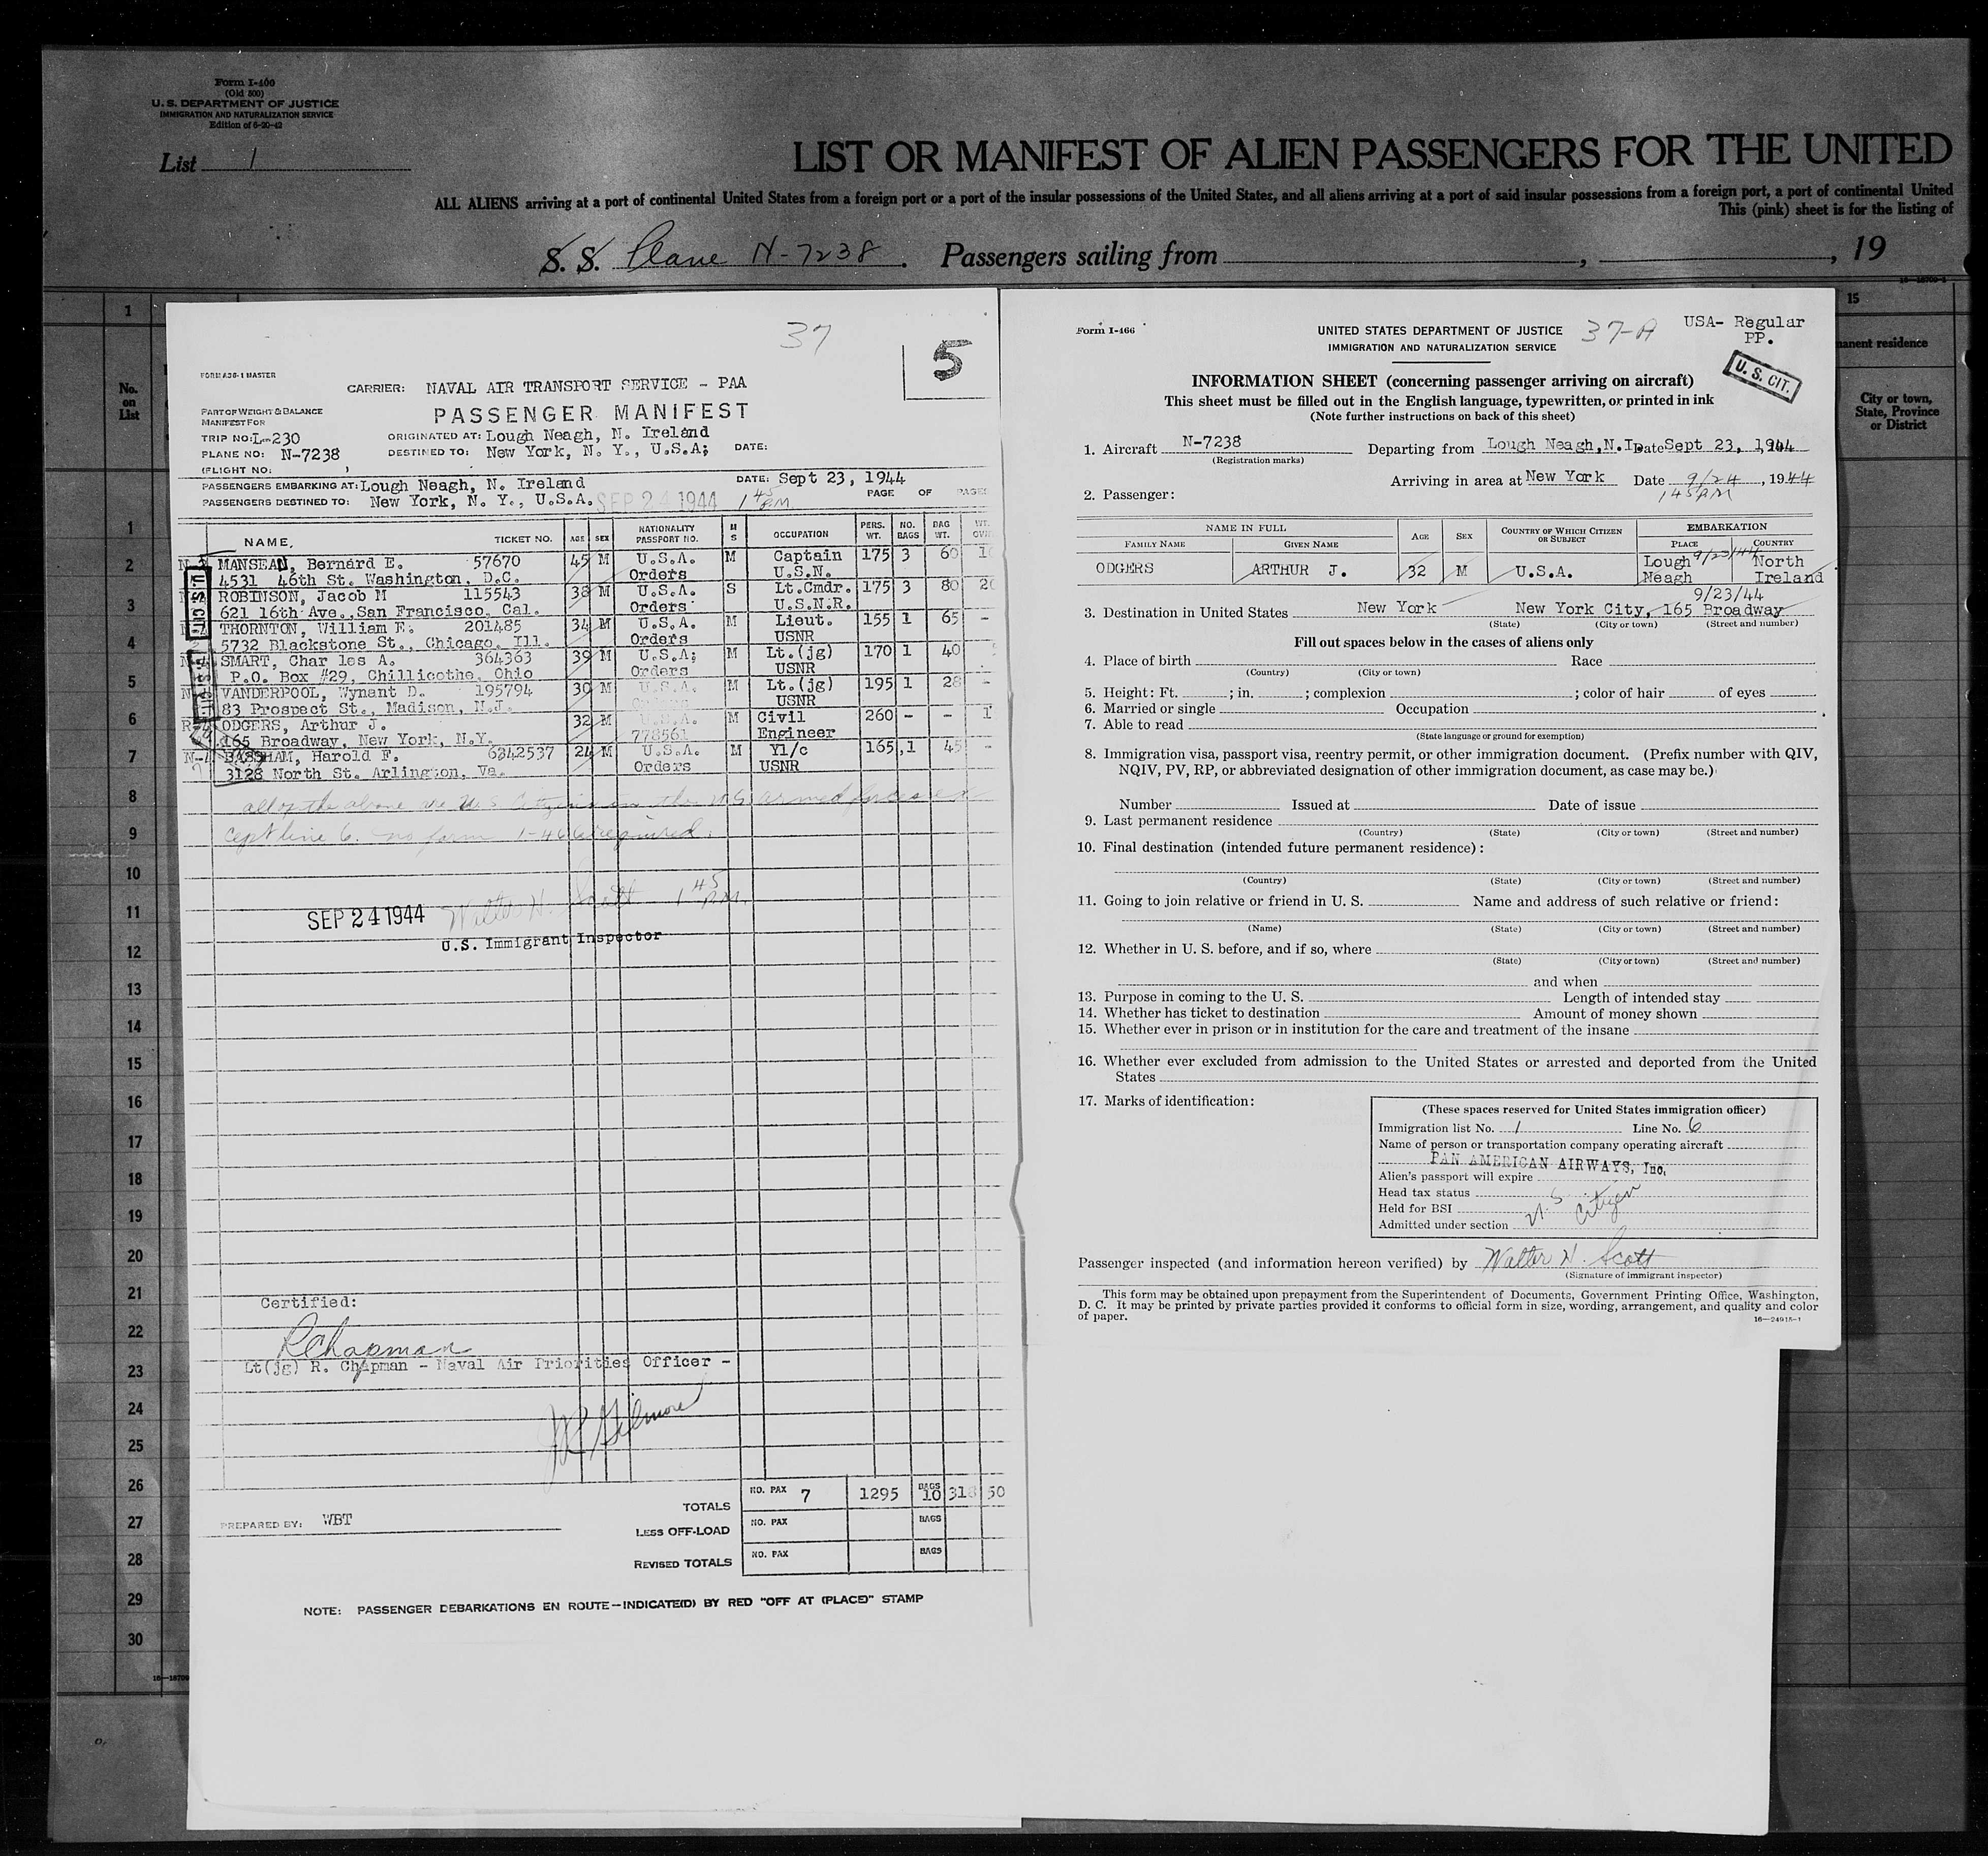 Form I-460
(Old 500)
U. S. DEPARTMENT OF JUSTICE
IMMIGRATION AND NATURALIZATION SERVICE
Edition of 6-20-42
List 1
LIST OR MANIFEST OF ALIEN PASSENGERS FOR THE UNITED
ALL ALIENS arriving at a port of continental United States from a foreign port or a port of the insular possessions of the United States, and all aliens arriving at a port of said insular possessions from a foreign port, a port of continental United
This (pink) sheet is for the listing of
S. S. Plane N-7238. Passengers sailing from , , 19
1
No. on List
15
manent residence
City or town, State, Province or District
37
5
FORM A36-1 MASTER
CARRIER: NAVAL AIR TRANSPORT SERVICE - PAA
PART OF WEIGHT & BALANCE
MANIFEST FOR
PASSENGER MANIFEST
TRIP NO: L-230
ORIGINATED AT: Lough Neagh, N. Ireland
PLANE NO: N-7238
DESTINED TO: New York, N. Y., U.S.A; DATE:
(FLIGHT NO: )
PASSENGERS EMBARKING AT: Lough Neagh, N. Ireland DATE: Sept 23, 1944
PASSENGERS DESTINED TO: New York, N. Y., U.S.A. SEP 24 1944 1 45 P.M. PAGE OF PAGES
NAME, TICKET NO. AGE SEX NATIONALITY PASSPORT NO. M S OCCUPATION PERS. WT. NO. BAGS BAG WT.
MANSEAU, Bernard E. 57670 45 M U.S.A. M Captain 175 3 60
4531 46th St. Washington, D.C. Orders U.S.N.
ROBINSON, Jacob M 115543 38 M U.S.A. S Lt.Cmdr. 175 3 80
621 16th Ave. San Francisco, Cal. Orders U.S.N.R.
THORNTON, William F. 201485 34 M U.S.A. M Lieut. 155 1 65 -
5732 Blackstone St., Chicago, Ill. Orders USNR
SMART, Char les A. 364363 39 M U.S.A; M Lt.(jg) 170 1 40
P.O. Box #29, Chillicothe, Ohio Orders USNR
VANDERPOOL, Wynant D. 195794 30 M U.S.A. M Lt.(jg) 195 1 28 -
83 Prospect St., Madison, N.J. USNR
ODGERS, Arthur J. 32 M U.S.A. M Civil 260 - -
165 Broadway, New York, N.Y. 778561 Engineer
BASSHAM, Harold F. 6342537 24 M U.S.A. M Y1/c 165 1 45 -
3128 North St. Arlington, Va. Orders USNR
U.S. CIT.
U.S. CIT.
all of the above are U.S. Citizens in the U.S. armed forces ex
cept line 6. no form I-466 required.
SEP 24 1944 Walter H. Scott 1 45 P.M.
U.S. Immigrant Inspector
Certified:
R Chapman
Lt(jg) R. Chapman - Naval Air Priorities Officer -
Gilmore
TOTALS NO. PAX 7 1295 BAGS 10 318 50
PREPARED BY: WBT
LESS OFF-LOAD NO. PAX BAGS
REVISED TOTALS NO. PAX BAGS
NOTE: PASSENGER DEBARKATIONS EN ROUTE--INDICATE(D) BY RED "OFF AT (PLACE)" STAMP
1
2
3
4
5
6
7
8
9
10
11
12
13
14
15
16
17
18
19
20
21
22
23
24
25
26
27
28
29
30
Form I-466
UNITED STATES DEPARTMENT OF JUSTICE
IMMIGRATION AND NATURALIZATION SERVICE
37-A
USA- Regular
PP.
U. S. CIT.
INFORMATION SHEET (concerning passenger arriving on aircraft)
This sheet must be filled out in the English language, typewritten, or printed in ink
(Note further instructions on back of this sheet)
1. Aircraft N-7238 Departing from Lough Neagh, N.I. Date Sept 23, 1944
(Registration marks)
Arriving in area at New York Date 9/24, 1944
1 45 PM
2. Passenger:
NAME IN FULL AGE SEX COUNTRY OF WHICH CITIZEN OR SUBJECT EMBARKATION
FAMILY NAME GIVEN NAME PLACE COUNTRY
ODGERS ARTHUR J. 32 M U.S.A. Lough Neagh 9/23/44 North Ireland
9/23/44
3. Destination in United States New York New York City, 165 Broadway
(State) (City or town) (Street and number)
Fill out spaces below in the cases of aliens only
4. Place of birth Race
(Country) (City or town)
5. Height: Ft. ; in. ; complexion ; color of hair of eyes
6. Married or single Occupation
7. Able to read
(State language or ground for exemption)
8. Immigration visa, passport visa, reentry permit, or other immigration document. (Prefix number with QIV,
NQIV, PV, RP, or abbreviated designation of other immigration document, as case may be.)
Number Issued at Date of issue
9. Last permanent residence
(Country) (State) (City or town) (Street and number)
10. Final destination (intended future permanent residence):
(Country) (State) (City or town) (Street and number)
11. Going to join relative or friend in U. S. Name and address of such relative or friend:
(Name) (State) (City or town) (Street and number)
12. Whether in U. S. before, and if so, where
(State) (City or town) (Street and number)
and when
13. Purpose in coming to the U. S. Length of intended stay
14. Whether has ticket to destination Amount of money shown
15. Whether ever in prison or in institution for the care and treatment of the insane
16. Whether ever excluded from admission to the United States or arrested and deported from the United
States
17. Marks of identification:
(These spaces reserved for United States immigration officer)
Immigration list No. 1 Line No. 6
Name of person or transportation company operating aircraft
PAN AMERICAN AIRWAYS, Inc.
Alien's passport will expire
Head tax status
Held for BSI
Admitted under section U.S. Citizen
Passenger inspected (and information hereon verified) by Walter H. Scott
(Signature of immigrant inspector)
This form may be obtained upon prepayment from the Superintendent of Documents, Government Printing Office, Washington,
D. C. It may be printed by private parties provided it conforms to official form in size, wording, arrangement, and quality and color
of paper.
16—24915-1